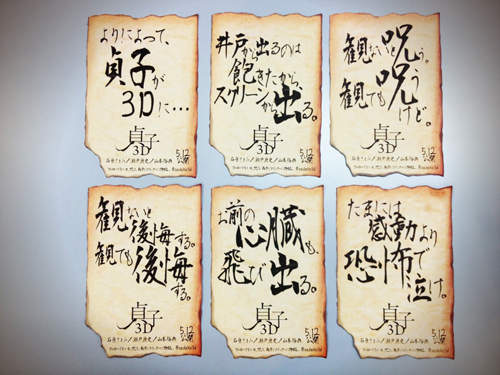 よりによって、
貞子が
3Dに…
貞子
3D
5.12
公開
井戸から出るのは
飽きたから、
スクリーンから出る。
貞子
3D
5.12
公開
観ないと呪う。
観ても呪う
けど。
貞子
3D
5.12
公開
観ないと
後悔する。
観ても
後悔する。
貞子
3D
5.12
公開
お前の
心臓も、
飛び出る。
貞子
3D
5.12
公開
たまには
感動より
恐怖で
泣け。
貞子
3D
5.12
公開